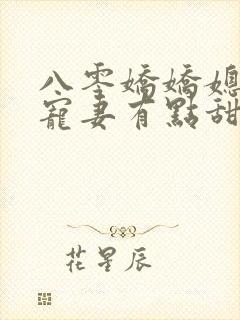 八零嬌嬌媳
寵妻有點甜
花星辰